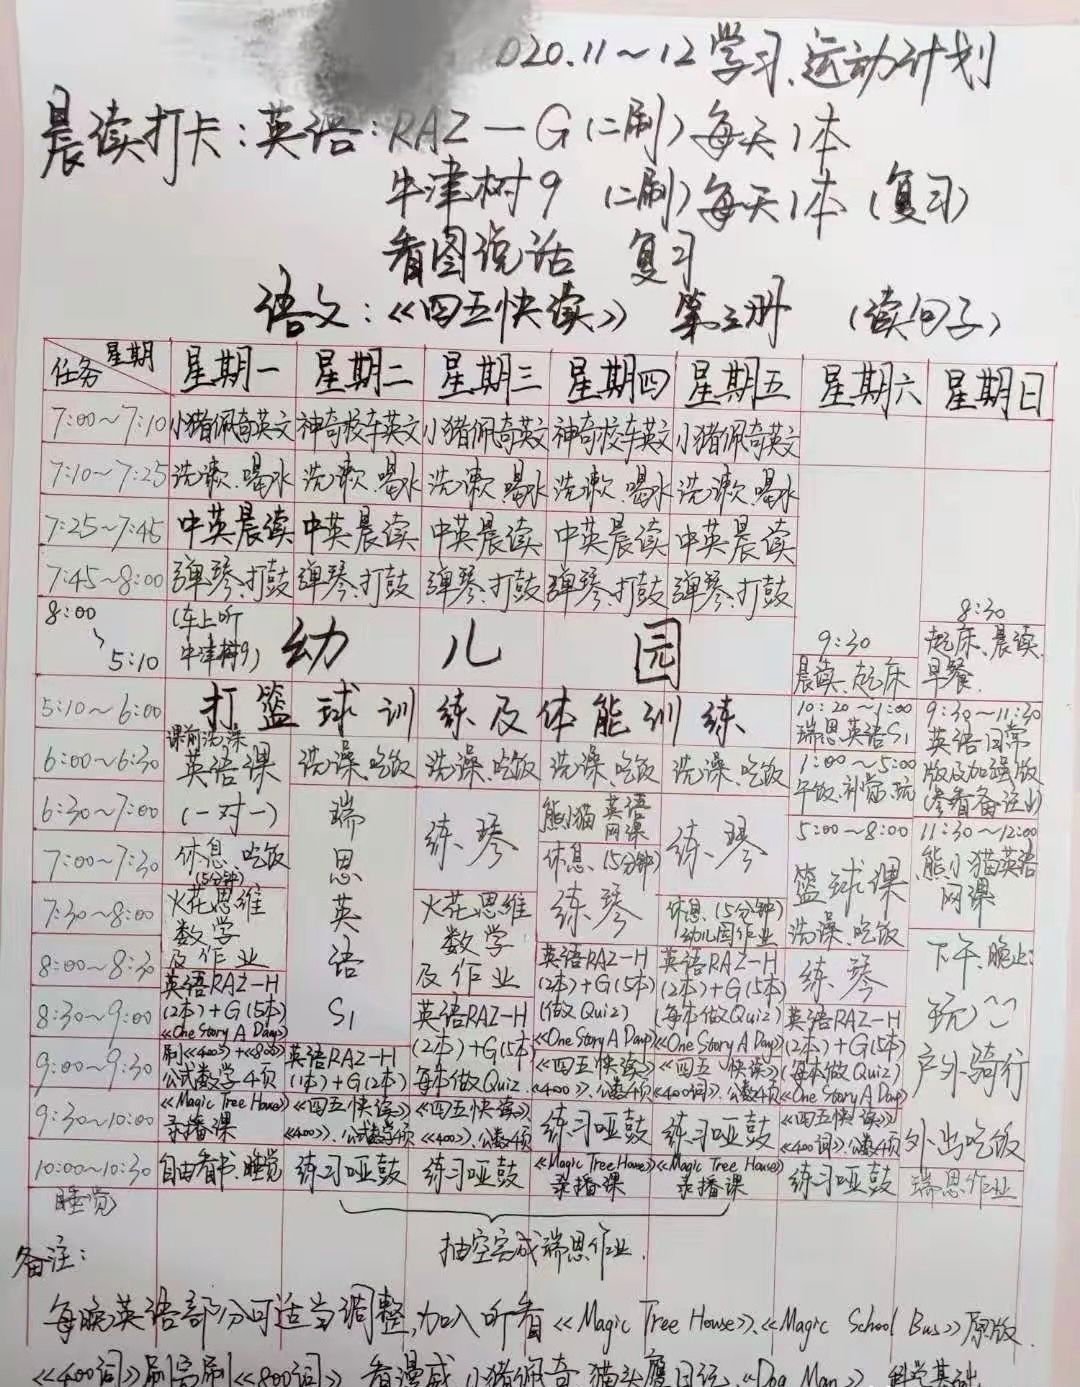 020.11～12学习、运动计划
晨读打卡：英语：RAZ－G（二刷）每天1本
牛津树9（二刷）每天1本（复习）
看图说话 复习
语文：《四五快读》 第三册 （读句子）
任务 星期 星期一 星期二 星期三 星期四 星期五 星期六 星期日
7:00～7:10 小猪佩奇英文 神奇校车英文 小猪佩奇英文 神奇校车英文 小猪佩奇英文
7:10～7:25 洗漱、喝水 洗漱、喝水 洗漱、喝水 洗漱、喝水 洗漱、喝水
7:25～7:45 中英晨读 中英晨读 中英晨读 中英晨读 中英晨读
7:45～8:00 弹琴、打鼓 弹琴、打鼓 弹琴、打鼓 弹琴、打鼓 弹琴、打鼓
8:00～5:10 （车上听牛津树9） 幼儿园
9:30
晨读、起床
8:30
起床、晨读、
早餐.
5:10～6:00 打篮球训练及体能训练
10:20～1:00
瑞思英语S1
9:30～11:30
英语日常
版及加强版
（参看备注）
6:00～6:30 课前洗澡 英语课 洗澡、吃饭 洗澡、吃饭 洗澡、吃饭 洗澡、吃饭
1:00～5:00
午饭、补觉、玩
6:30～7:00 （一对一） 瑞思英语S1 练琴 熊小猫英语网课 练琴
5:00～8:00
篮球课
洗澡、吃饭
11:30～12:00
熊小猫英语
网课
7:00～7:30 休息、吃饭（15分钟） 休息（15分钟）
7:30～8:00 火花思维 数学 及作业 火花思维 数学 及作业 练琴 休息（15分钟） 幼儿园作业
下午、晚上:
玩
户外骑行
外出吃饭
8:00～8:30 英语RAZ－H（2本）+G（5本） 英语RAZ－H（2本）+G（5本）（做Quiz） 英语RAZ－H（2本）+G（5本）（每本做Quiz） 练琴
8:30～9:00 《One Story A Day》 英语RAZ－H（2本）+G（5本 每本做Quiz 《One Story A Day》 《One Story A Day》 英语RAZ－H（2本）+G（5本 （每本做Quiz） 《One Story A Day》
9:00～9:30 刷《400》+《800》 公式数学4页 英语RAZ－H（1本）+G（2本） 《四五快读》《400》、公数4页 《四五快读》《400词》、公数4页
9:30～10:00 《Magic Tree House》录播课 《四五快读》《400》、公式数学4页 《四五快读》、《400》、公数4页 练习哑鼓 练习哑鼓 《四五快读》《400词》、公数4页
10:00～10:30 自由看书、睡觉 练习哑鼓 练习哑鼓 《Magic Tree House》录播课 《Magic Tree House》录播课 练习哑鼓 瑞思作业
睡觉
抽空完成瑞思作业.
备注：
每晚英语部分可适当调整,加入听看《Magic Tree House》、《Magic School Bus》原版.
《400词》刷完刷《800词》、看漫威、小猪佩奇、猫头鹰日记、《Dog Man》、科学基础